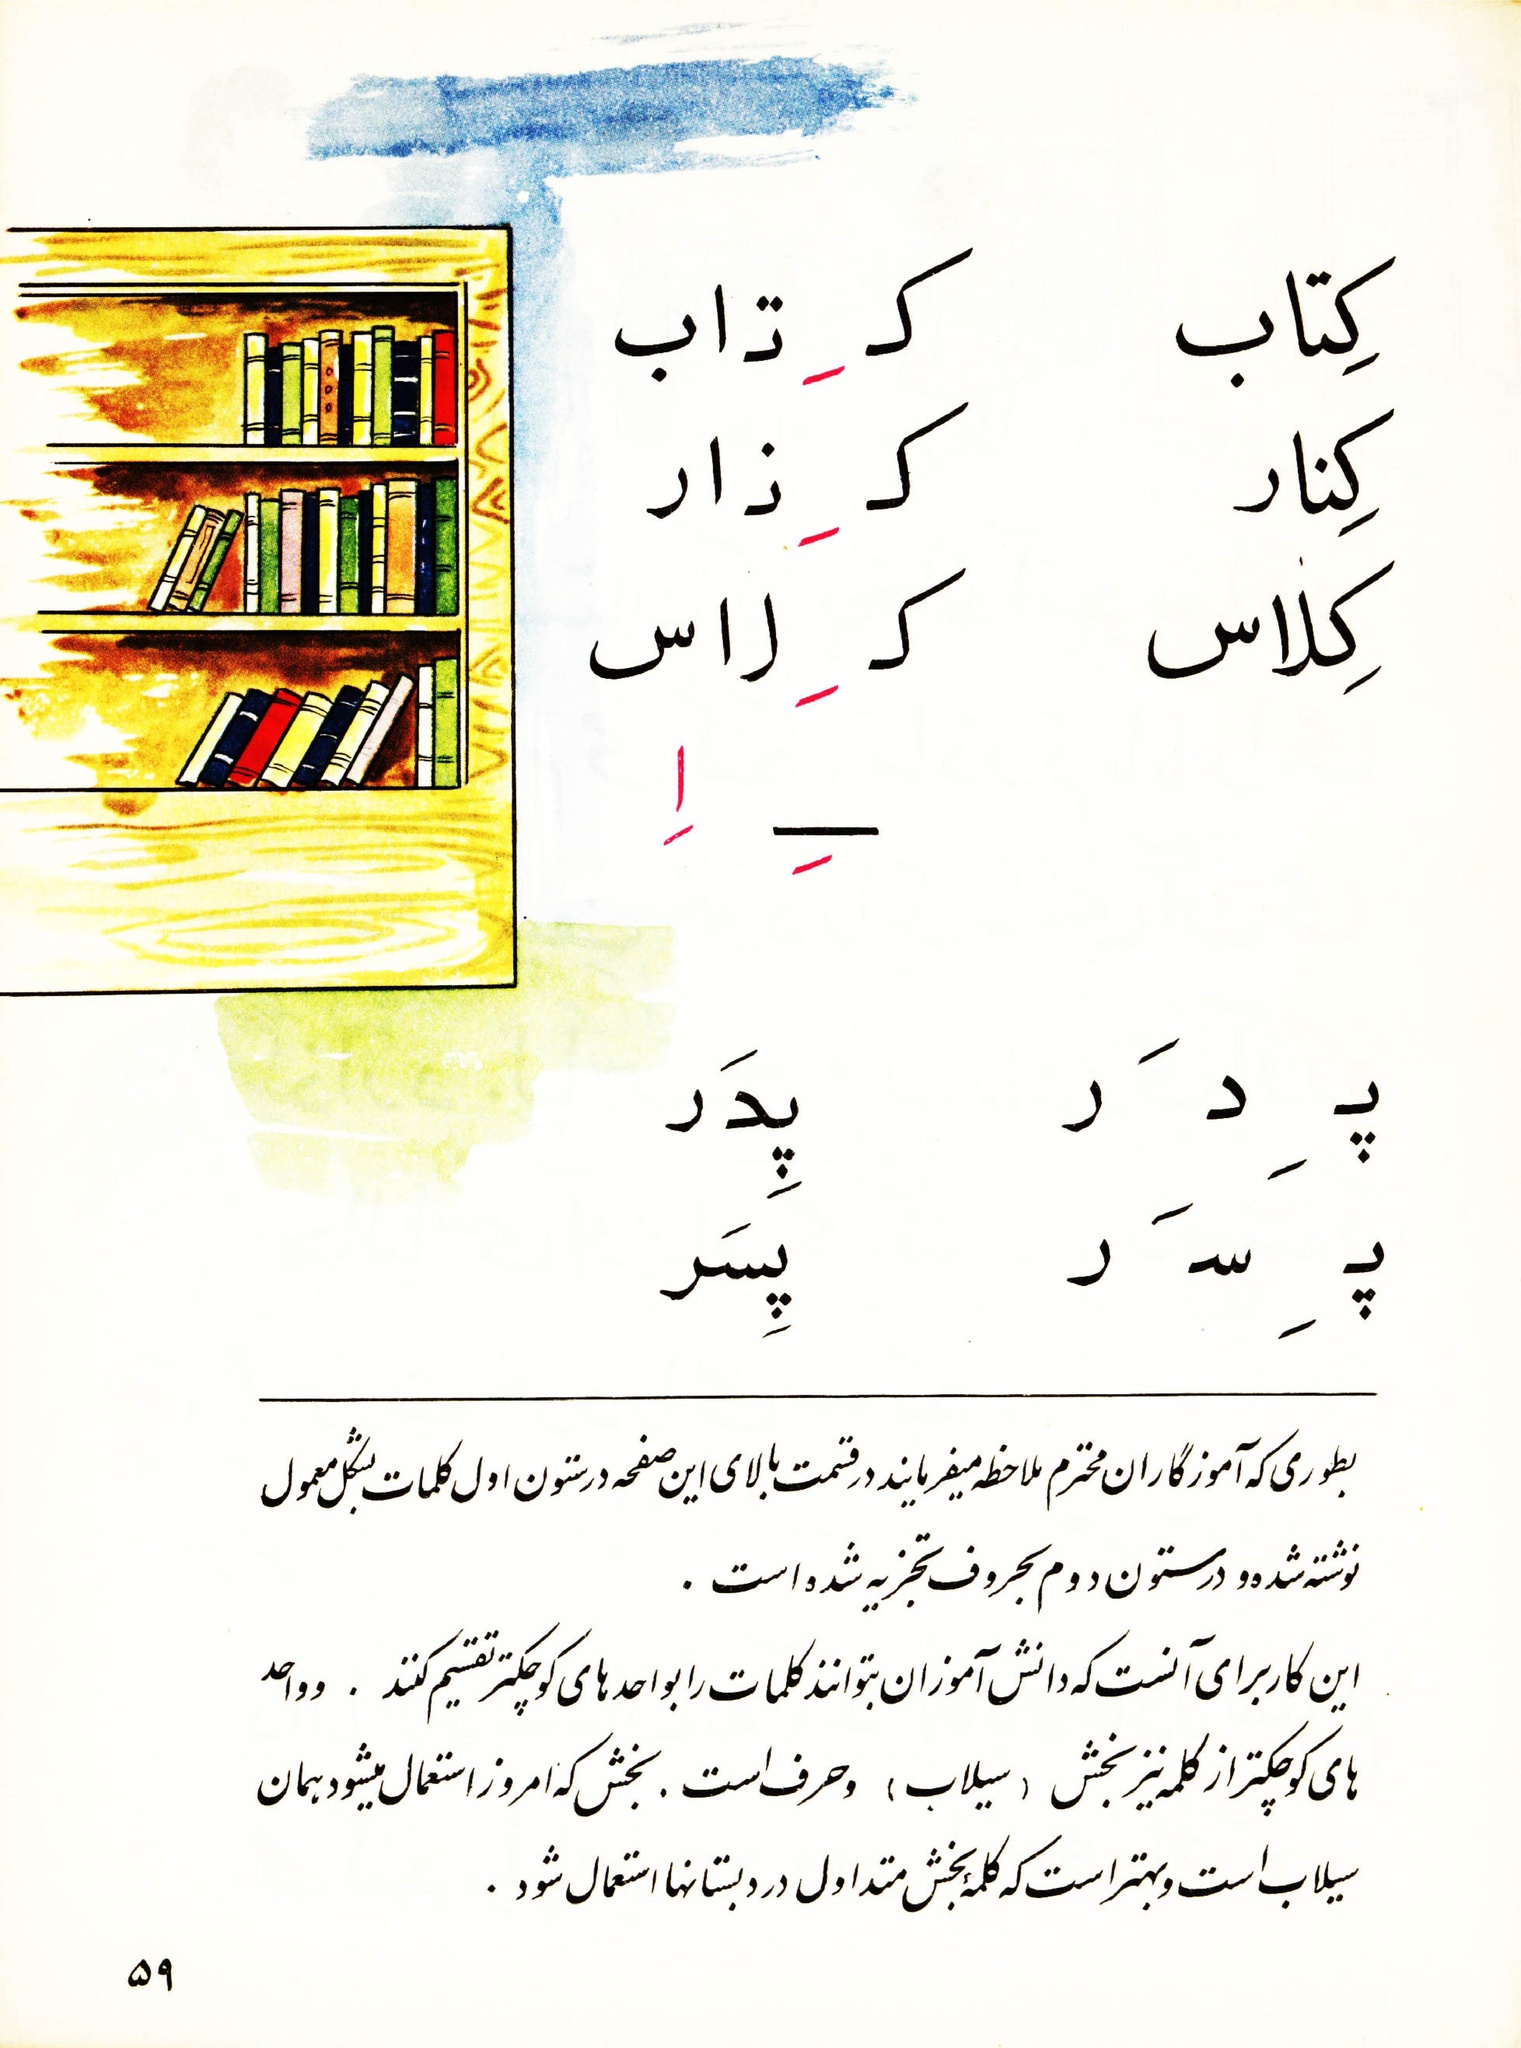 کِتاب کـ ـِ تـ ا ب
کِنار کـ ـِ نـ ا ر
کِلاس کـ ـِ لـ ا س
ـِـ اِ
پـ ـِ د ـَ ر پِدَر
پـ ـِ سـ ـَ ر پِسَر
بطوری که آموزگاران محترم ملاحظه میفرمایند در قسمت بالای این صفحه در ستون اول کلمات بشکل معمول
نوشته شده و در ستون دوم بحروف تجزیه شده است .
این کار برای آنست که دانش آموزان بتوانند کلمات را بواحد های کوچکتر تقسیم کنند . و واحد
های کوچکتر از کلمه نیز بخش (سیلاب) و حرف است . بخش که امروز استعمال میشود همان
سیلاب است و بهتر است که کلمهٔ بخش متداول در دبستانها استعمال شود .
۵۹